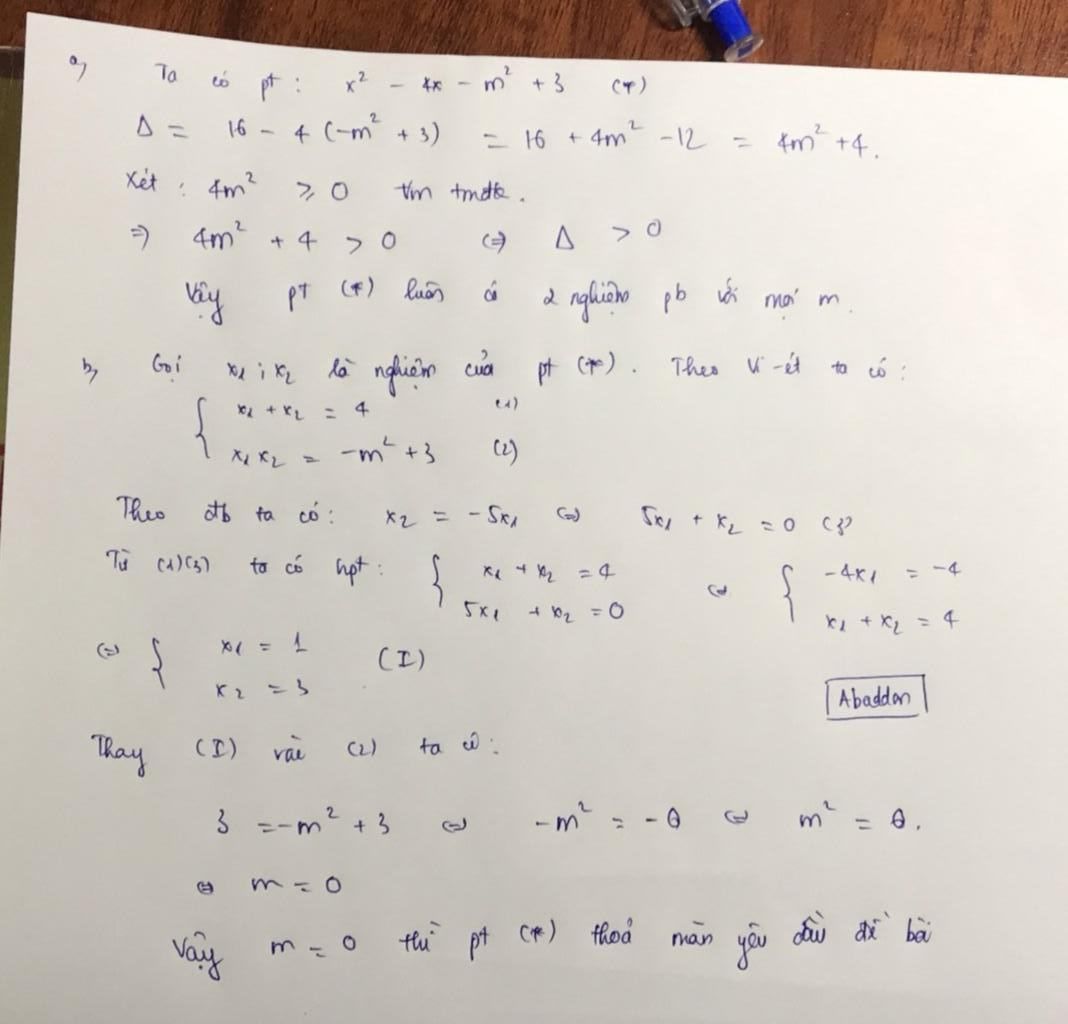 a, Ta có pt: x² - 4x - m² + 3 (*)
Δ = 16 - 4 (-m² + 3) = 16 + 4m² - 12 = 4m² + 4.
Xét: 4m² ≥ 0 ∀m tmđk.
⇒ 4m² + 4 > 0 ⇔ Δ > 0
Vậy pt (*) luôn có 2 nghiệm pb với mọi m.
b, Gọi x₁; x₂ là nghiệm của pt (*). Theo Vi-ét ta có:
{ x₁ + x₂ = 4 (1)
x₁x₂ = -m² + 3 (2)
Theo đb ta có: x₂ = -5x₁ ⇔ 5x₁ + x₂ = 0 (3)
Từ (1)(3) ta có hpt: { x₁ + x₂ = 4 ⇔ { -4x₁ = -4
5x₁ + x₂ = 0 x₁ + x₂ = 4
⇔ { x₁ = 1 (I)
x₂ = 3
Abaddon
Thay (I) vào (2) ta có:
3 = -m² + 3 ⇔ -m² = -0 ⇔ m² = 0.
⇔ m = 0
Vậy m = 0 thì pt (*) thoả mãn yêu cầu đề bài